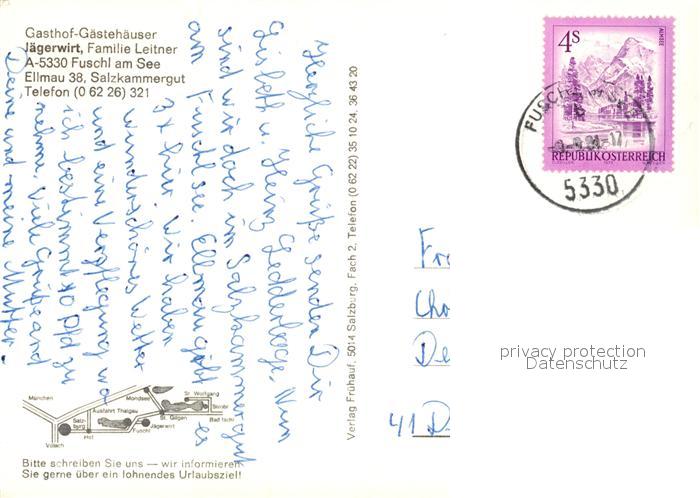 Gasthof-Gästehäuser
Jägerwirt, Familie Leitner
A-5330 Fuschl am See
Ellmau 38, Salzkammergut
Telefon (0 62 26) 321
Herzliche Grüße senden Dir
Gisbeth u. Heinz Nun
sind wir doch im Salzkammergut
am Fuschlsee. Ellmau gibt es
3x hier. Wir haben
wunderschönes Wetter
und eine Verpflegung wo
ich bestimmt 10 Pfd zu
nehme. Viele Grüße and
Deine und meine Mutter.
Verlag Frühauf, 5014 Salzburg, Fach 2, Telefon (0 62 22) 35 10 24, 36 43 20
4S
ALMSEE
REPUBLIK ÖSTERREICH
FUSCHL
5330
Fr
Cho
De
41 D
privacy protection
Datenschutz
München
Mondsee
St. Wolfgang
Ausfahrt Thalgau
Strobl
Salzburg
St. Gilgen
Bad Ischl
Hof
Fuschl
Jägerwirt
Villach
Bitte schreiben Sie uns — wir informieren
Sie gerne über ein lohnendes Urlaubsziel!